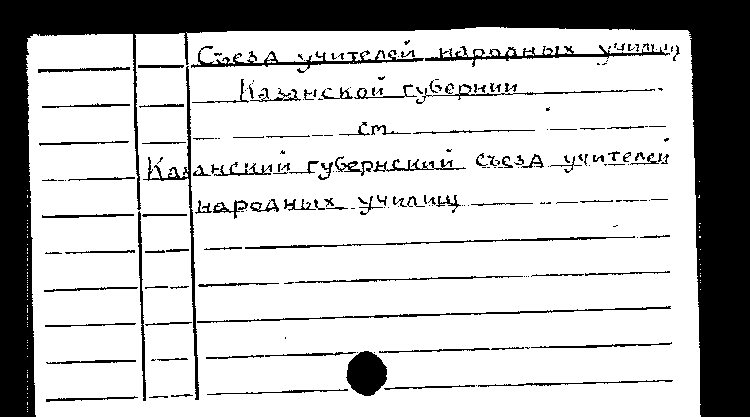 Съезд учителей народных училищ
Казанской губернии
см.
Казанский губернский съезд учителей
народных училищ